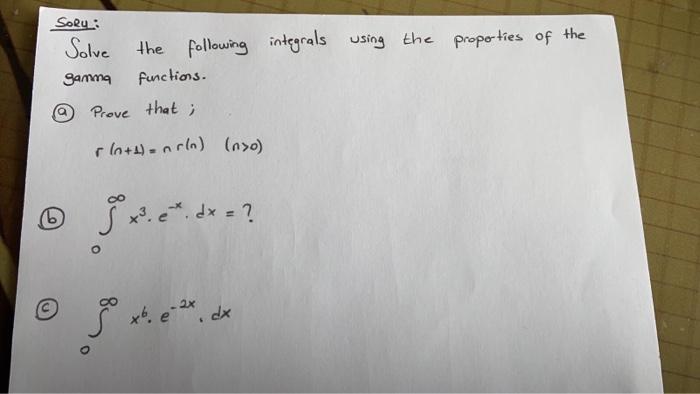 SORU:
Solve the following integrals using the properties of the
gamma functions.
(a) Prove that ;
Γ(n+1) = n Γ(n) (n>0)
(b) ∫₀^∞ x³. e⁻ˣ. dx = ?
(c) ∫₀^∞ x⁶. e⁻²ˣ. dx